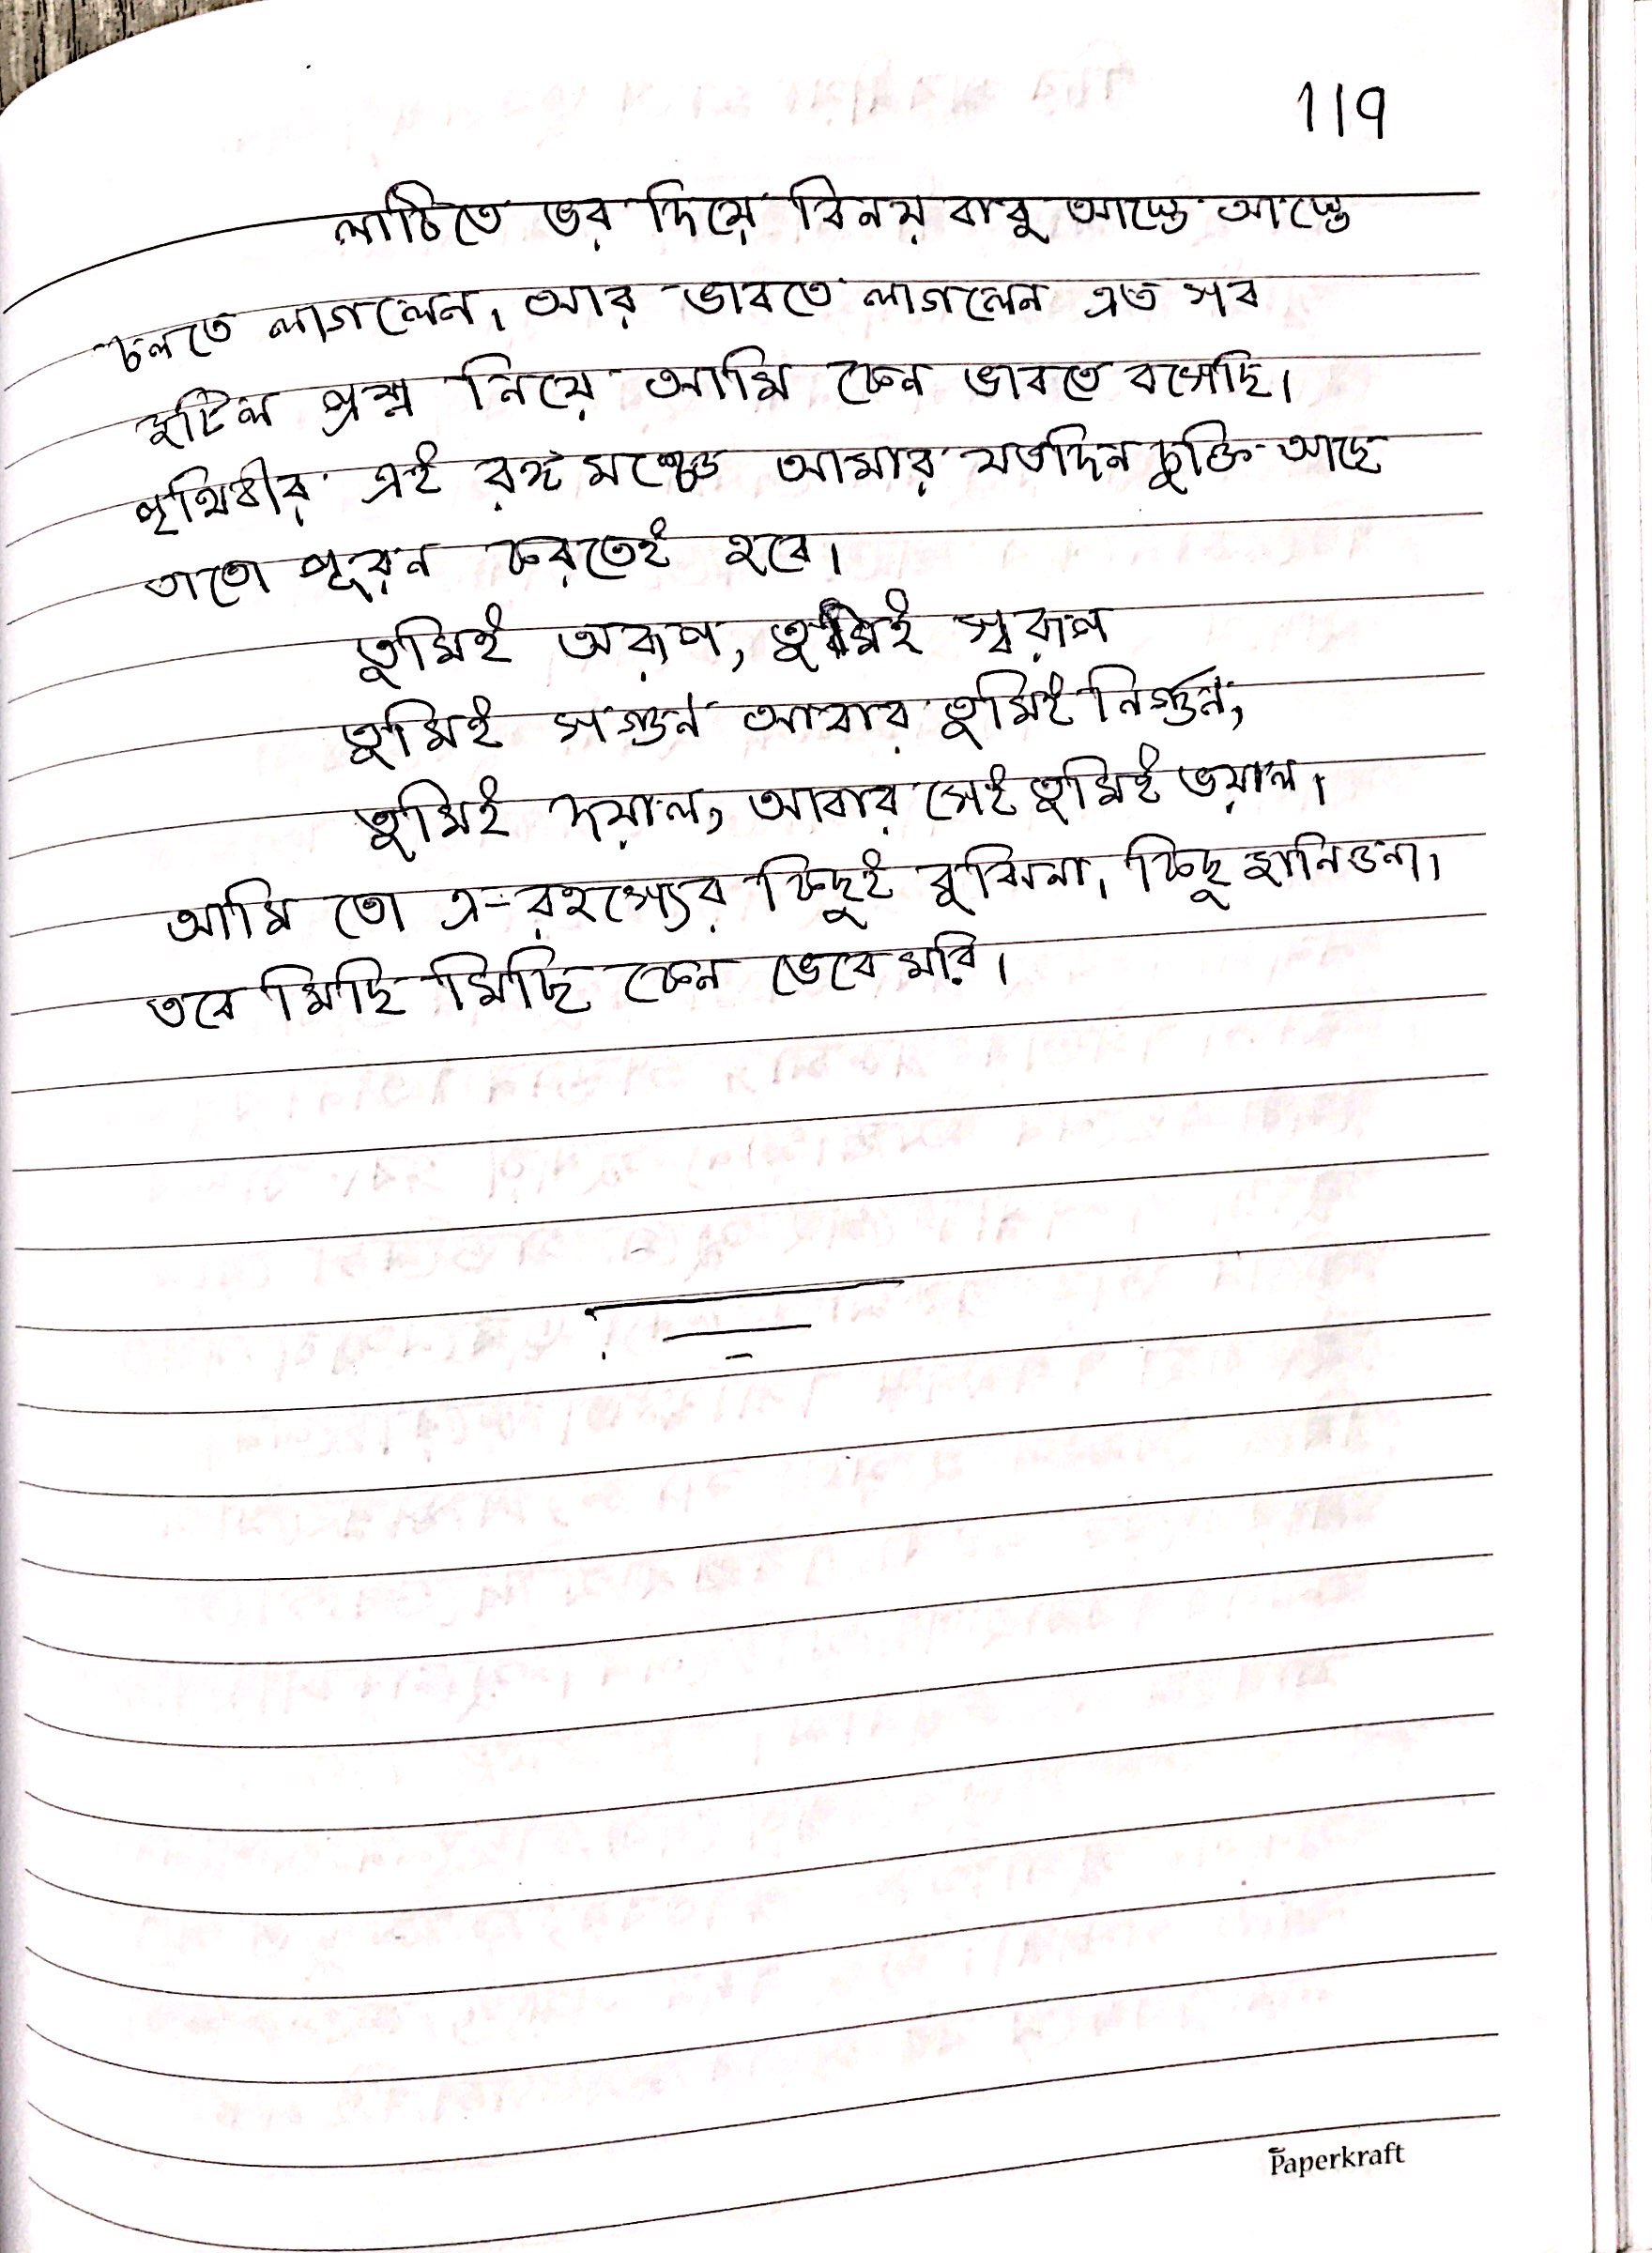 119
লাঠিতে ভর দিয়ে বিনয় বাবু আস্তে আস্তে
চলতে লাগলেন। আর ভাবতে লাগলেন এত সব
কুটিল প্রশ্ন নিয়ে আমি কেন ভাবতে বসেছি।
পৃথিবীর এই রঙ্গমঞ্চে আমার যতদিন চুক্তি আছে
তাতো পূরন করতেই হবে।
তুমিই অরূপ, তুমিই স্বরূপ
তুমিই সগুন আবার তুমিই নির্গুন,
তুমিই দয়াল, আবার সেই তুমিই ভয়াল।
আমি তো এ-রহস্যের কিছুই বুঝিনা। কিছু জানিওনা।
তবে মিছি মিছি কেন ভেবে মরি।
Paperkraft